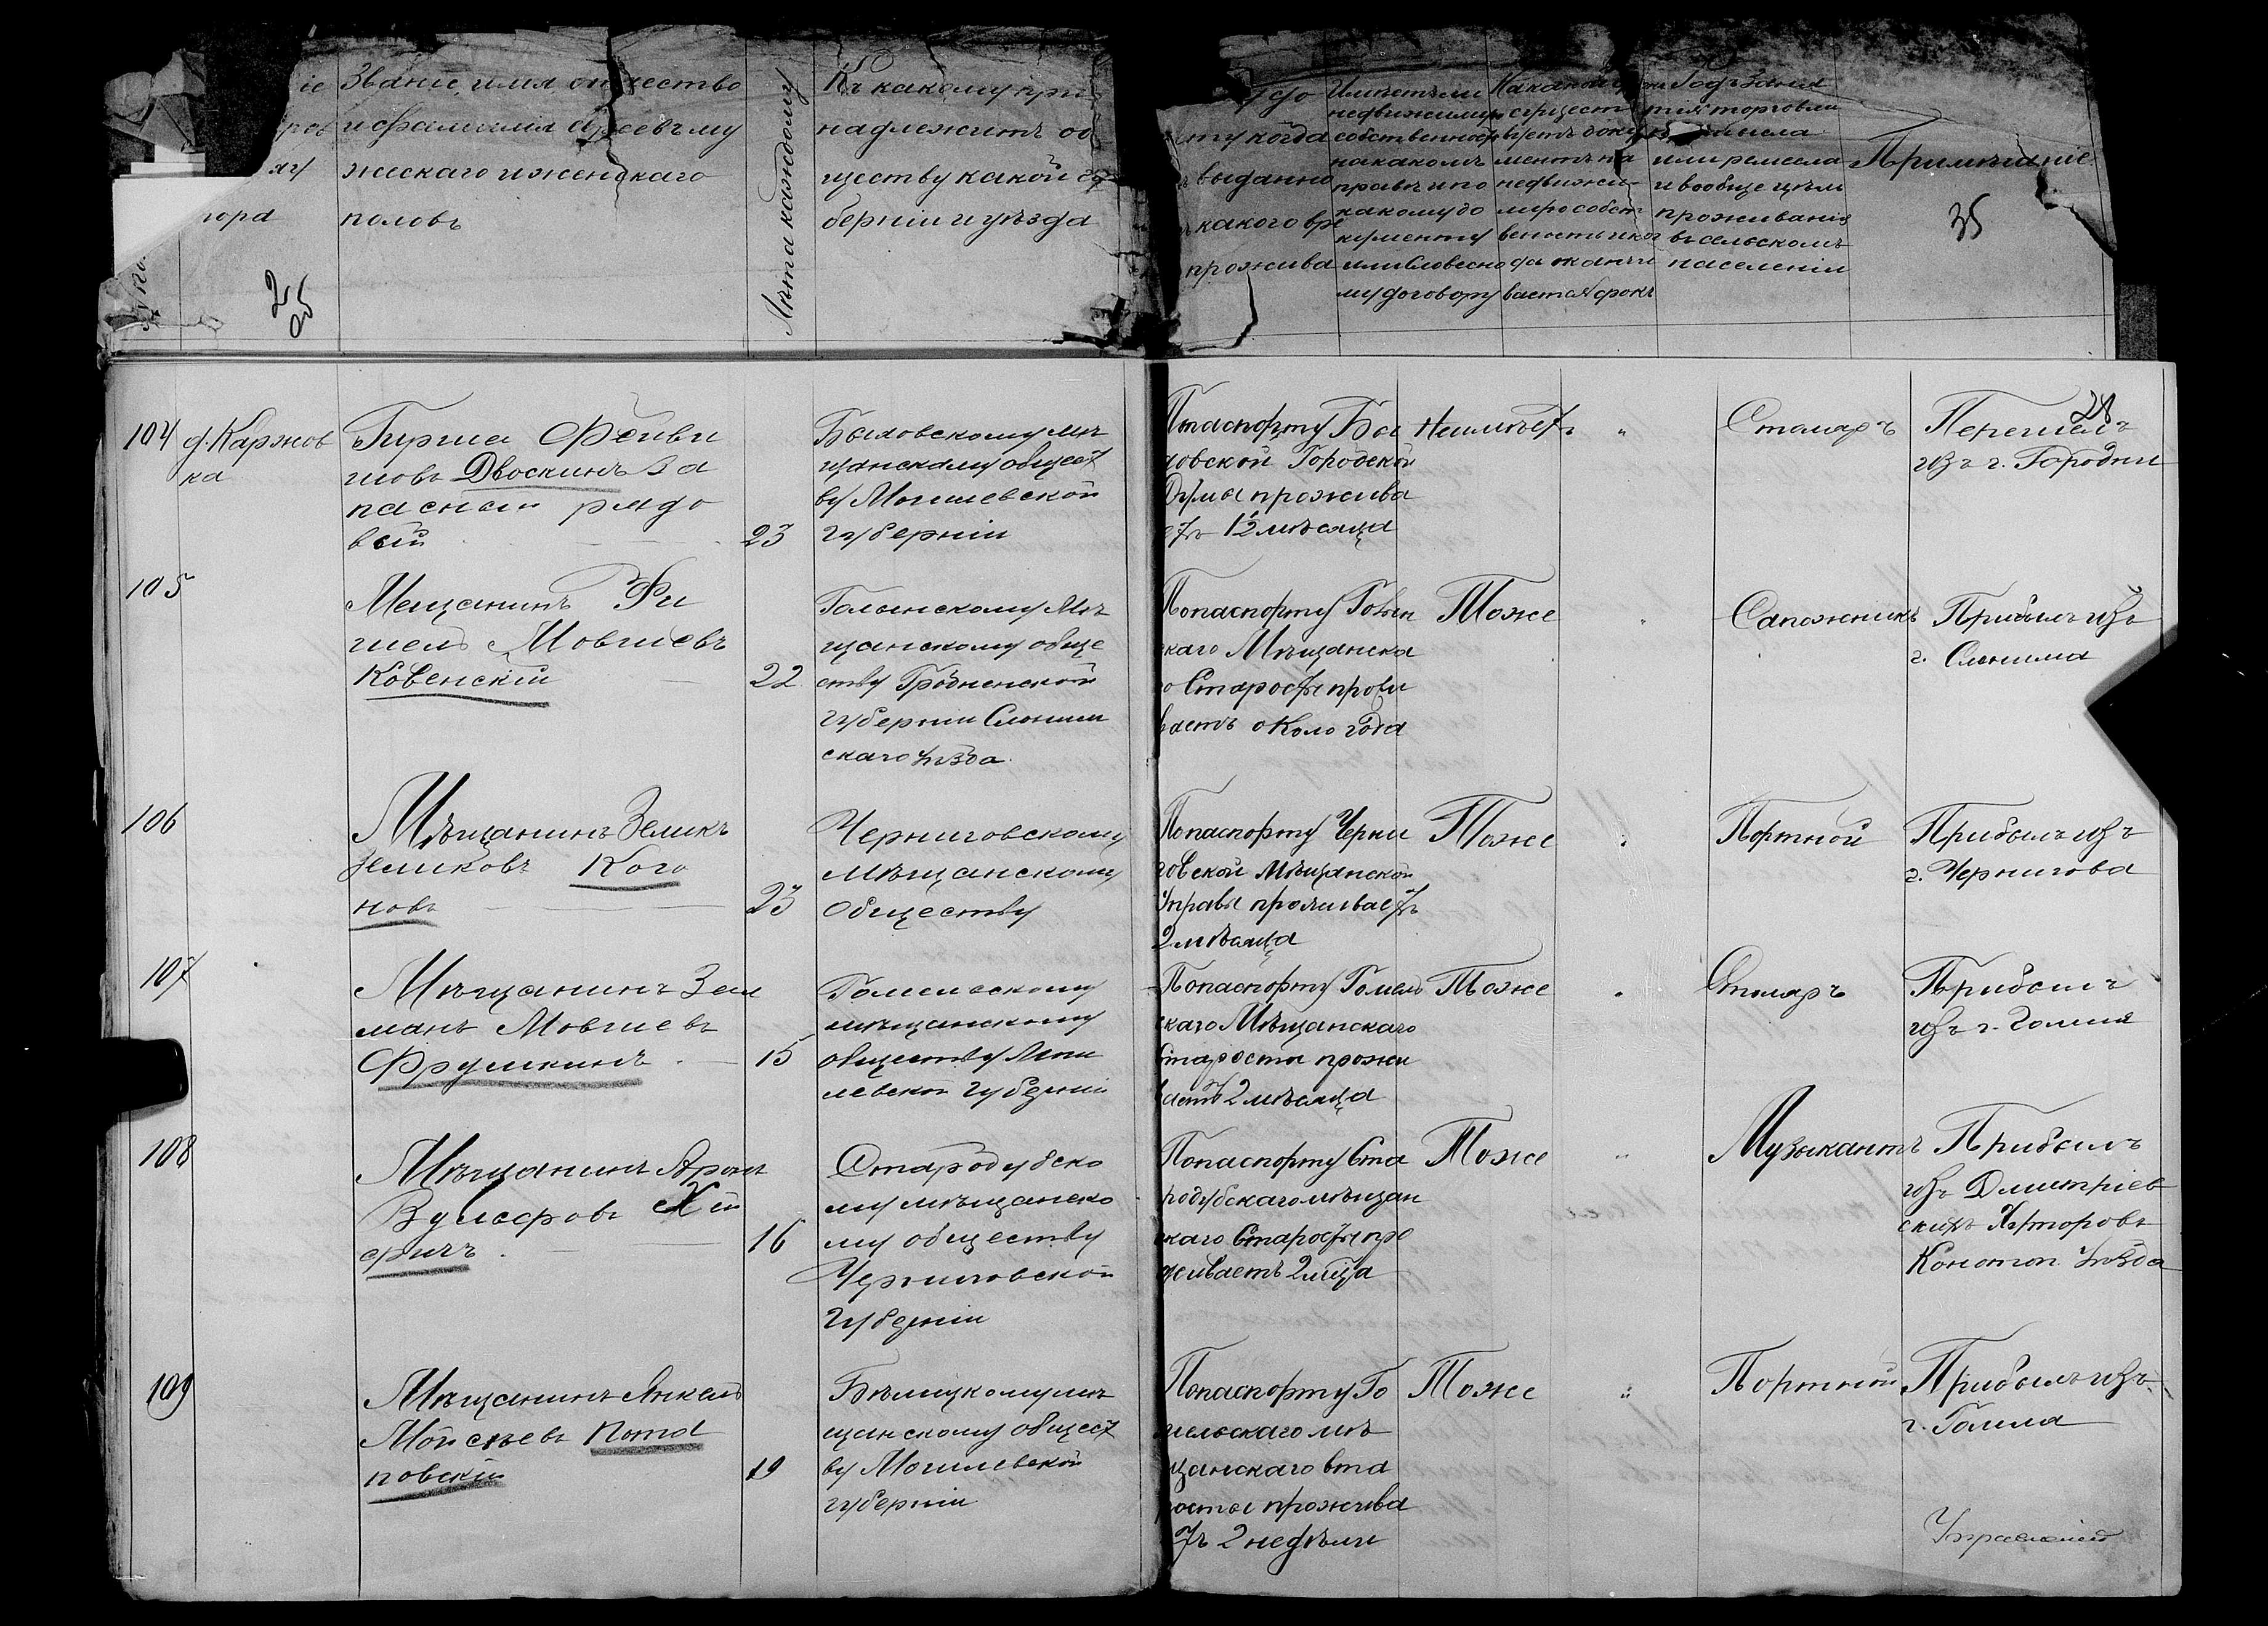 іе
яг
пора
Званіе, имя отчество
и фамилія евреевъ му
жескаго и женскаго
половъ
Лѣта каждому
Къ какому при
надлежитъ об
ществу какой гу
берніи и уѣзда
ту когда
выданно
какого вре
прожива
Имѣетъ ли
недвижимую
собственность
на какомъ
правѣ и по
какому до
кументу
или словесно
му договору
Годъ заня
тія торговли
или ремесла
и вообще цѣли
проживанія
въ сельскомъ
населеніи
Примѣчаніе
35
25
28
104
д. Каржов
ка
Гирша Фейви
шовъ Двоскинъ за
пасный рядо
вой
23
Быховскому мѣ
щанскому общест
ву Могилевской
губерніи
Попаспорту Бы
ховской Городской
Думы прожива
етъ 1½ мѣсяца
Неимѣетъ
"
Столяръ
Перешелъ
изъ г. Городни
105
Мещанинъ Фи
шель Мовшевъ
Ковенскій
22
мѣ
щанскому обще
ству Гродненской
губерніи Слоним
скаго уѣзда
Попаспорту
скаго Мѣщанска
го Старосты прожи
ваетъ около года
Тоже
"
Сапожникъ
Прибылъ изъ
г. Слонима
106
Мѣщанинъ Зеликъ
Зеликовъ Кого
новъ
23
Черниговскому
мѣщанскому
Обществу
Попаспорту Черни
говской Мѣщанской
Управы проживаетъ
2 мѣсяца
Тоже
"
Портной
Прибылъ изъ
г. Чернигова
107
Мѣщанинъ Зел
манъ Мовшевъ
Фрумкинъ
15
Гомельскому
мѣщанскому
обществу Моги
левской губерніи
Попаспорту Гомель
скаго Мѣщанскаго
Старосты прожи
ваетъ 2 мѣсяца
Тоже
"
Столяръ
Прибылъ
изъ г. Гомля
108
Мѣщанинъ Аронъ
Вульфовъ Хей
фицъ
16
Стародубско
му мѣщанско
му обществу
Черниговской
губерніи
Попаспорту Ста
родубскаго мѣщан
скаго Старосты про
живаетъ 2 мѣца
Тоже
"
Музыкантъ
Прибылъ
изъ Дмитріев
скихъ Хуторовъ
Конотоп. уѣзда
109
Мѣщанинъ Янкель
Мойсѣевъ Пота
повскій
19
Бѣлицкому мѣ
щанскому общест
ву Могилевской
губерніи
Попаспорту Го
мельскаго мѣ
щанскаго Ста
росты прожива
етъ 2 недѣли
Тоже
"
Портной
Прибылъ изъ
г. Гомля